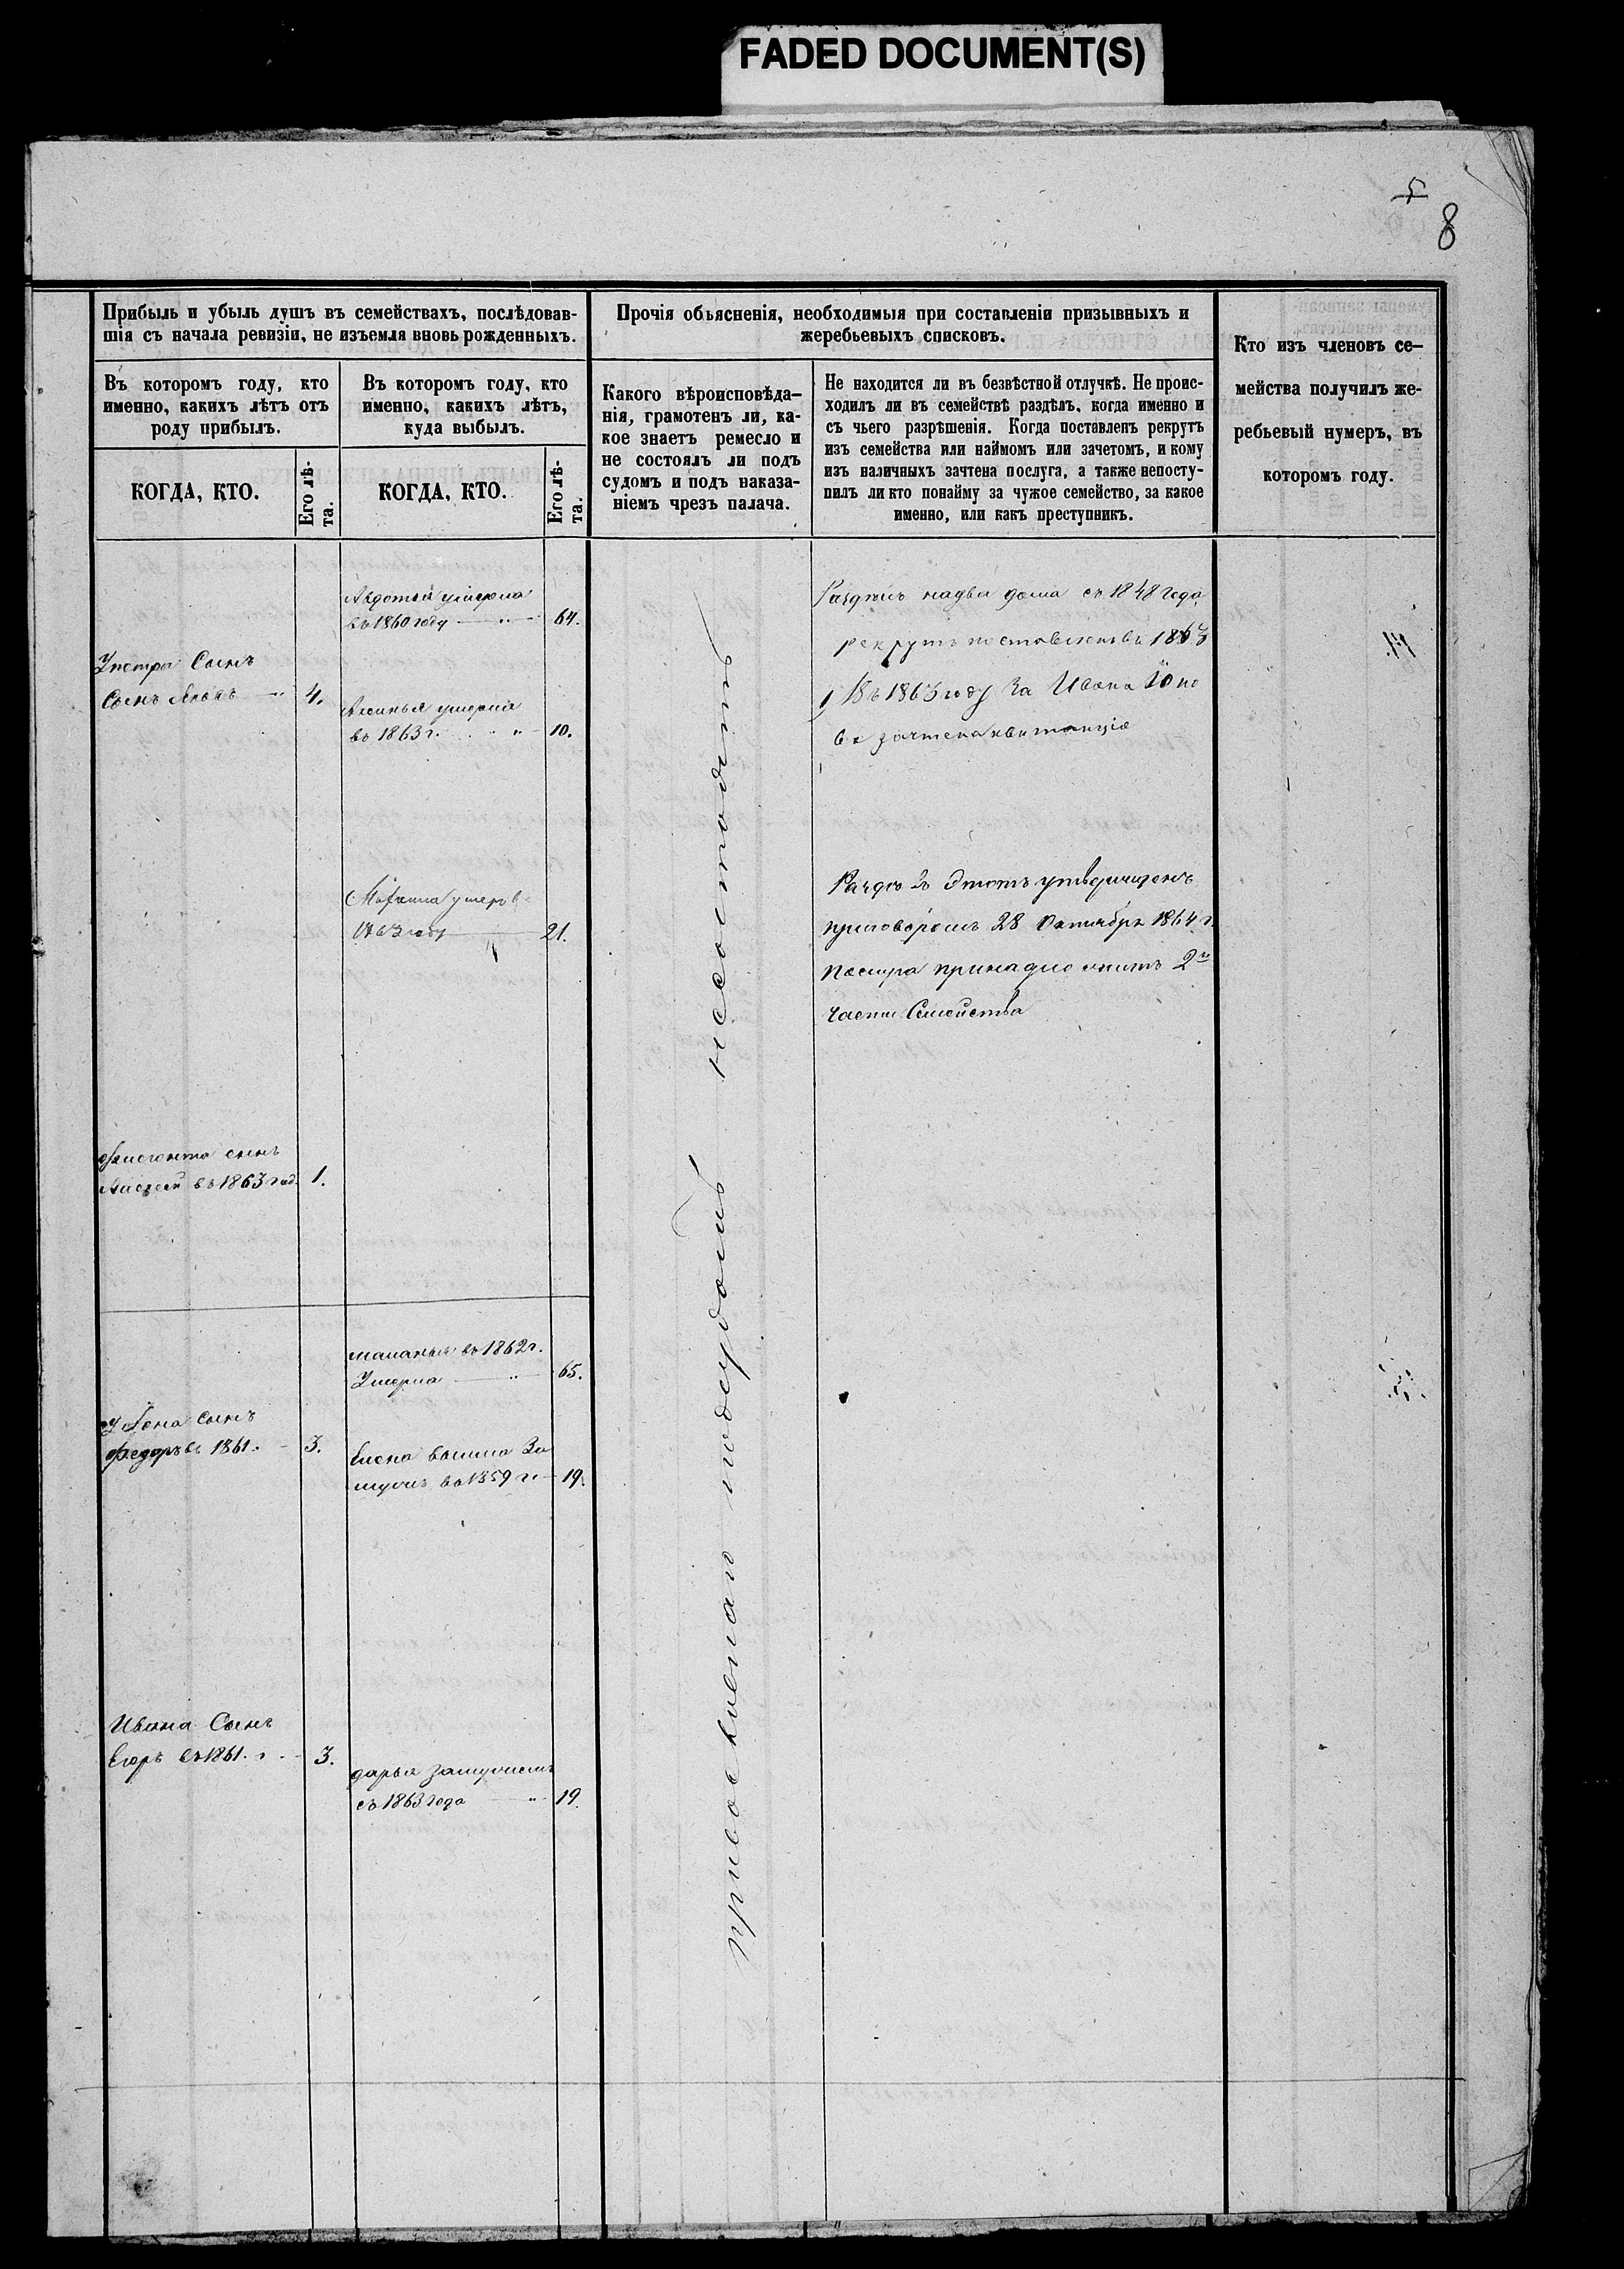 FADED DOCUMENT(S)
5
8
Прибыль и убыль душъ въ семействахъ, послѣдовав-
шія съ начала ревизіи, не изъемля вновь рожденныхъ.
Въ которомъ году, кто
именно, какихъ лѣтъ отъ
роду прибылъ.
КОГДА, КТО.
Его лѣ-
та.
Въ которомъ году, кто
именно, какихъ лѣтъ,
куда выбылъ.
КОГДА, КТО.
Его лѣ-
та.
Прочія объясненія, необходимыя при составленіи призывныхъ и
жеребьевыхъ списковъ.
Какого вѣроисповѣда-
нія, грамотенъ ли, ка-
кое знаетъ ремесло и
не состоялъ ли подъ
судомъ и подъ наказа-
ніемъ чрезъ палача.
Не находится ли въ безвѣстной отлучкѣ. Не проис-
ходилъ ли въ семействѣ раздѣлъ, когда именно и
съ чьего разрѣшенія. Когда поставленъ рекрутъ
изъ семейства или наймомъ или зачетомъ, и кому
изъ наличныхъ зачтена послуга, а также непосту-
пилъ ли кто понайму за чужое семейство, за какое
именно, или какъ преступникъ.
Кто изъ членовъ се-
мейства получилъ же-
ребьевый нумеръ, въ
которомъ году.
Авдотья умерла
въ 1860 году — " — 64.
Упетра Сынъ
Сынъ Яковъ — " 4.
Аксинья умерла
въ 1863 г. " — 10.
умеръ в
1863 году — 21.
сынъ
Алексей въ 1863 год. 1.
маланья въ 1862 г.
Умерла — " — 65.
У Іона сынъ
Федоръ въ 1861. — 3.
Елена вышла За
мужъ въ 1859 г. — 19.
Ивана Сынъ
Егоръ въ 1861. г. — 3.
дарья замужемъ
съ 1863 года — " — 19.
православнаго подсудомъ несостоитъ
Разделъ надва дома съ 1848 года
рекрутъ поставленъ въ 1863
Въ 1863 году За Ивана Іоно
ва зачтена квитанція
Разделъ Этотъ утвержденъ
приговоромъ 28 Октября 1864 г.
принадлежитъ 2й
части Семейства